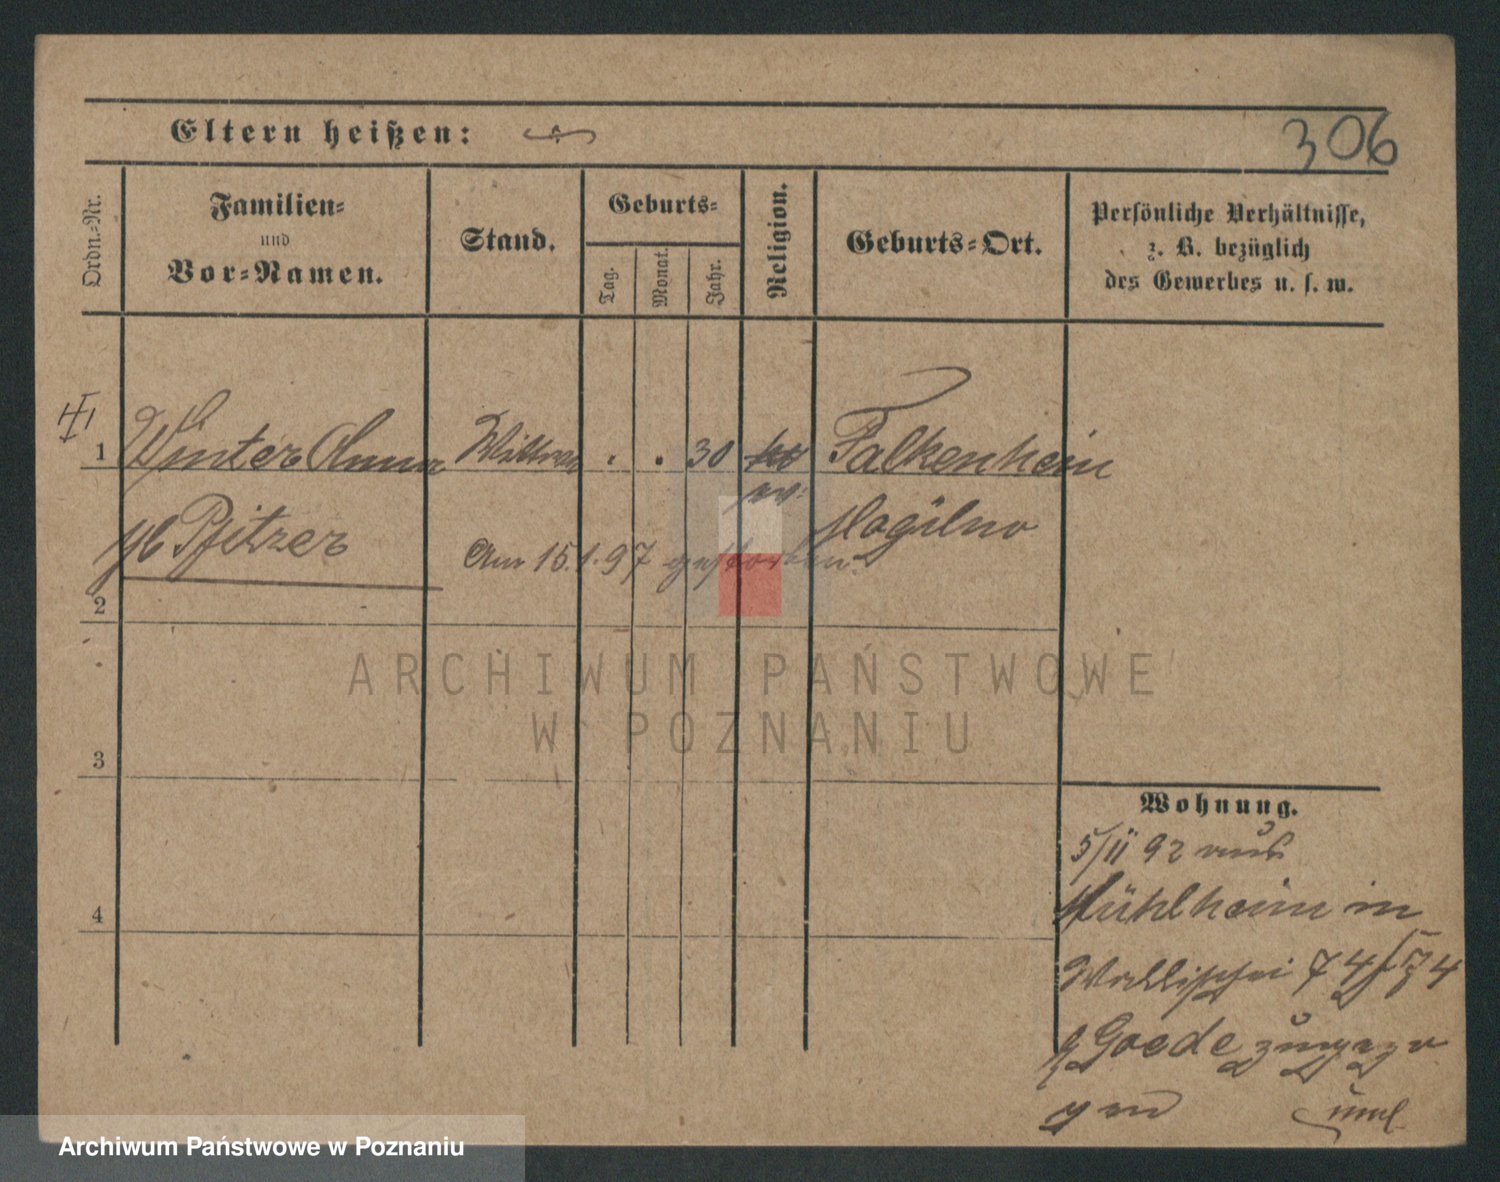 306
Eltern heißen:
Ordn.-Nr.
Familien-
und
Vor-Namen.
Stand.
Geburts-
Tag.
Monat.
Jahr.
Religion.
Geburts-Ort.
Persönliche Verhältnisse,
z. B. bezüglich
des Gewerbes u. s. w.
1 Winter Anna Wittwe . . 30 Falkenheim
Pfitzer ev: Mogilno
Am 15.1.97 gestorben.
2
ARCHIWUM PAŃSTWOWE
W POZNANIU
3
Wohnung.
5/II 92 aus
Mühlheim in
Wallischei 74/74
b Goede zugezo
gen
4
Archiwum Państwowe w Poznaniu